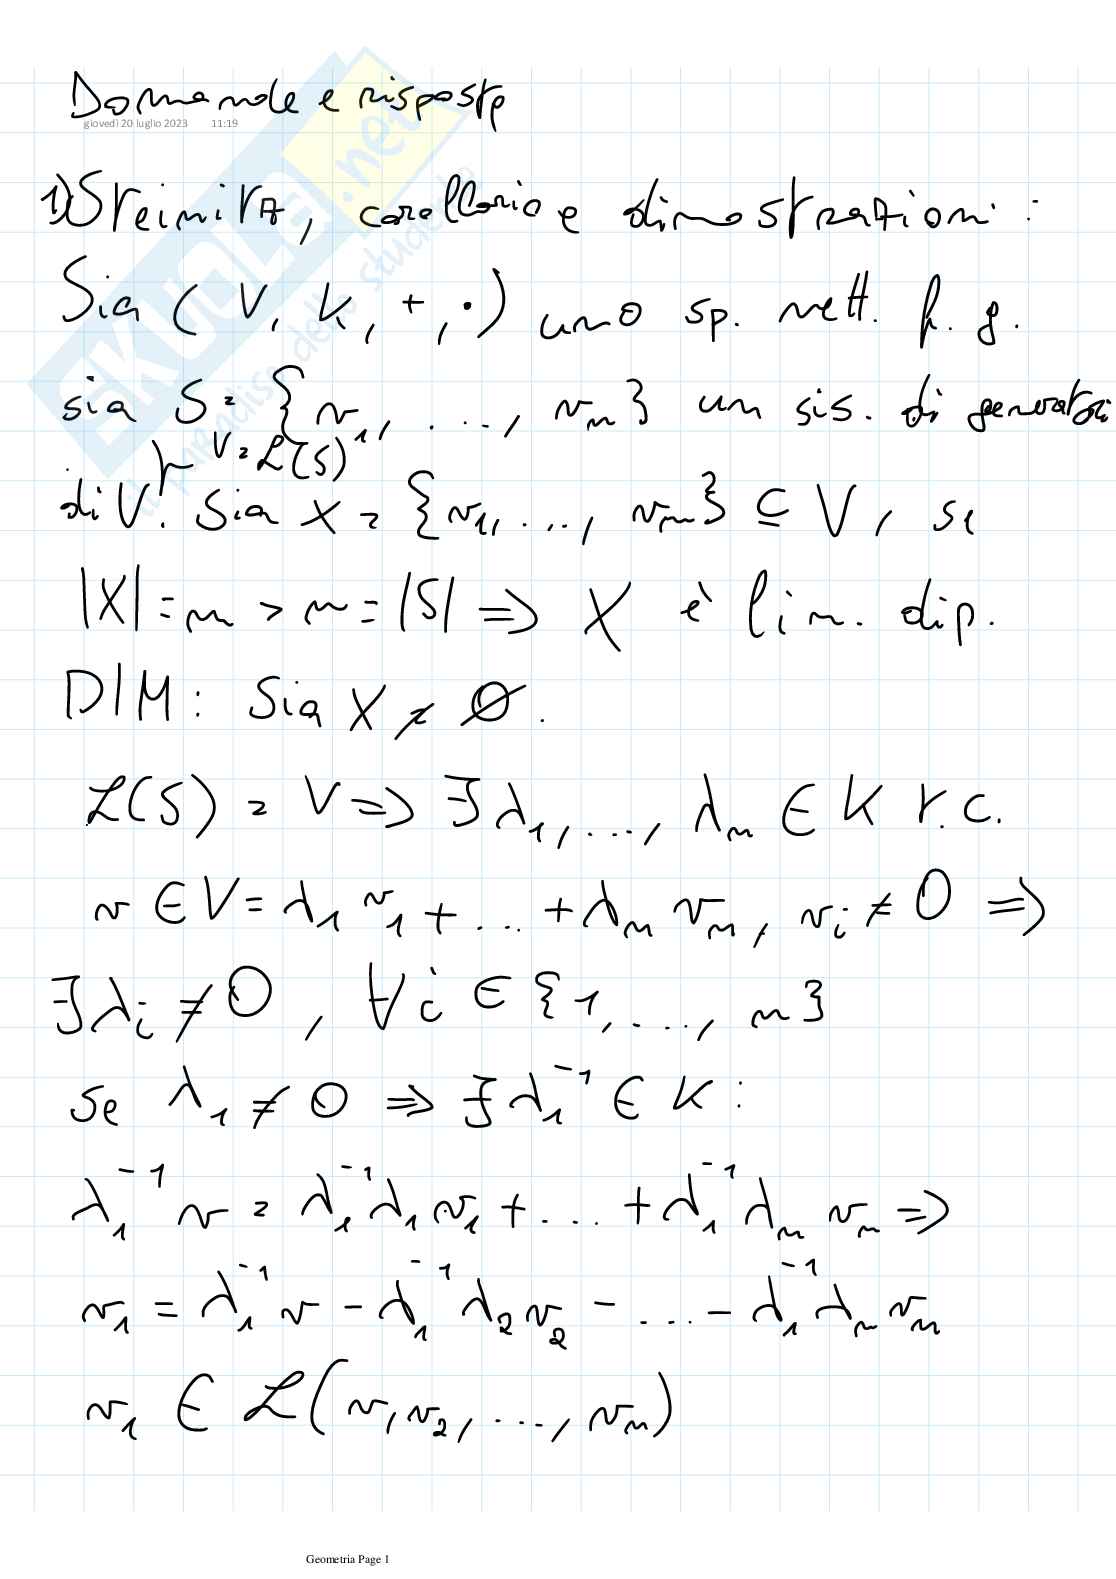 Domande e risposte
giovedì 20 luglio 2023 11:19
1) Steinitz, corollario e dimostrazioni:
Sia (V, K, +, ·) uno sp. vett. f. g.
sia S = {v1, ..., vn} un sis. di generatori
V = L(S)
di V. Sia X = {v1, ..., vm} ⊆ V, se
|X| = m > n = |S| ⇒ X è lin. dip.
DIM: Sia X ≠ ∅.
L(S) = V ⇒ ∃ λ1, ..., λn ∈ K t.c.
v ∈ V = λ1 v1 + ... + λn vn, vi ≠ 0 ⇒
∃ λi ≠ 0, ∀ i ∈ {1, ..., n}
Se λ1 ≠ 0 ⇒ ∃ λ1⁻¹ ∈ K:
λ1⁻¹ v = λ1⁻¹ λ1 v1 + ... + λ1⁻¹ λn vn ⇒
v1 = λ1⁻¹ v - λ1⁻¹ λ2 v2 - ... - λ1⁻¹ λn vn
v1 ∈ L(v, v2, ..., vn)
SKUOLA.net
il paradiso dello studente
Geometria Page 1